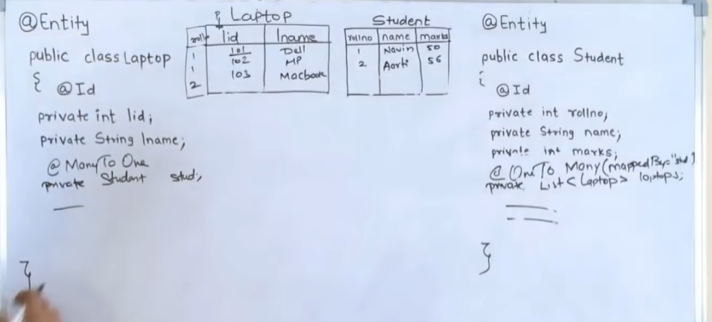 @Entity
public class Laptop
{
@Id
private int lid;
private String lname;
@Many To One
private Student stud;
}
Laptop
rollno lid lname
1 101 Dell
1 102 HP
2 103 Macbook
Student
rollno name marks
1 Navin 50
2 Aarti 56
@Entity
public class Student
{
@Id
private int rollno;
private String name;
private int marks;
@ One To Many (mappedBy="stud")
private List<Laptop> laptops;
}